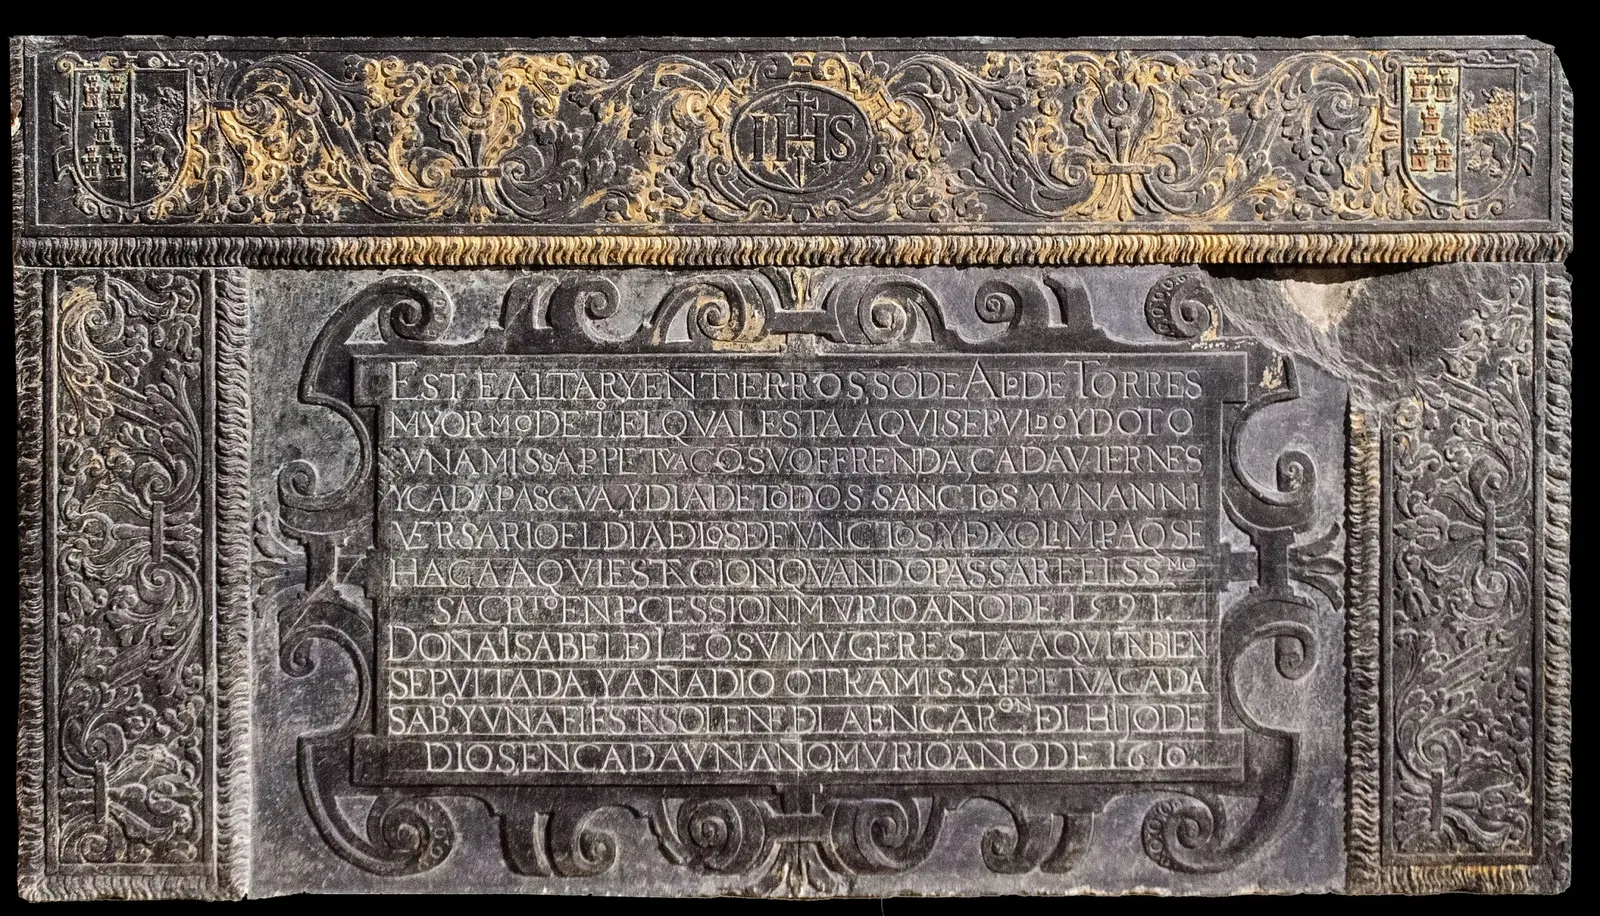 IHS
ESTE ALTAR Y ENTIERRO, OS, SO DE ALº DE TORRES
MYORMº DE T, EL QVAL ESTA AQVI SEPVLDO, Y DOTO
VNA MISSA PPETVA CŌ SV OFFRENDA, CADA VIERNES
Y CADA PASCVA, Y DIA DE TODOS SANCTOS, Y VN ANNI
VERSARIO EL DIA Đ LOS DEFVNCTOS, Y Đ
HAGA AQVI ESTACION QVANDO PASSARE EL SSMO
SACRTO EN PCESSION, MVRIO AÑO DE 1591.
DOÑA ISABEL Đ LEŌ SV MVGER ESTA AQVI TĀBIEN
SEPVLTADA, Y AÑADIO OTRA MISSA PPETVA CADA
SABº, Y VNA FIESTA SOLENE ĐLA ENCARON ĐL HIJO DE
DIOS, EN CADA VN AÑO, MVRIO AÑO DE 1610.